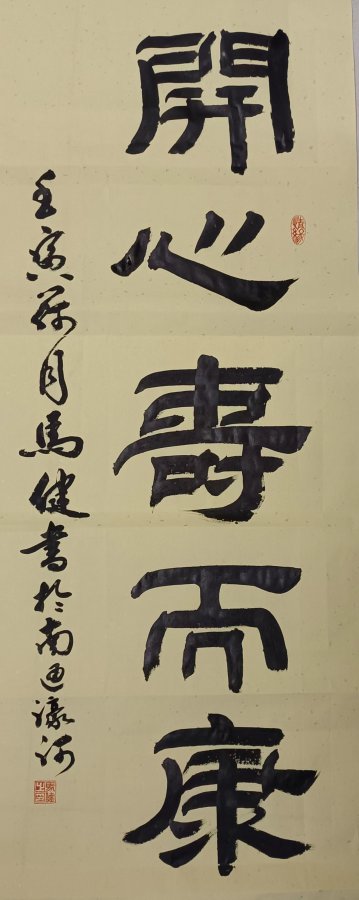 開心壽而康
壬寅荷月馬健書於南通濠河